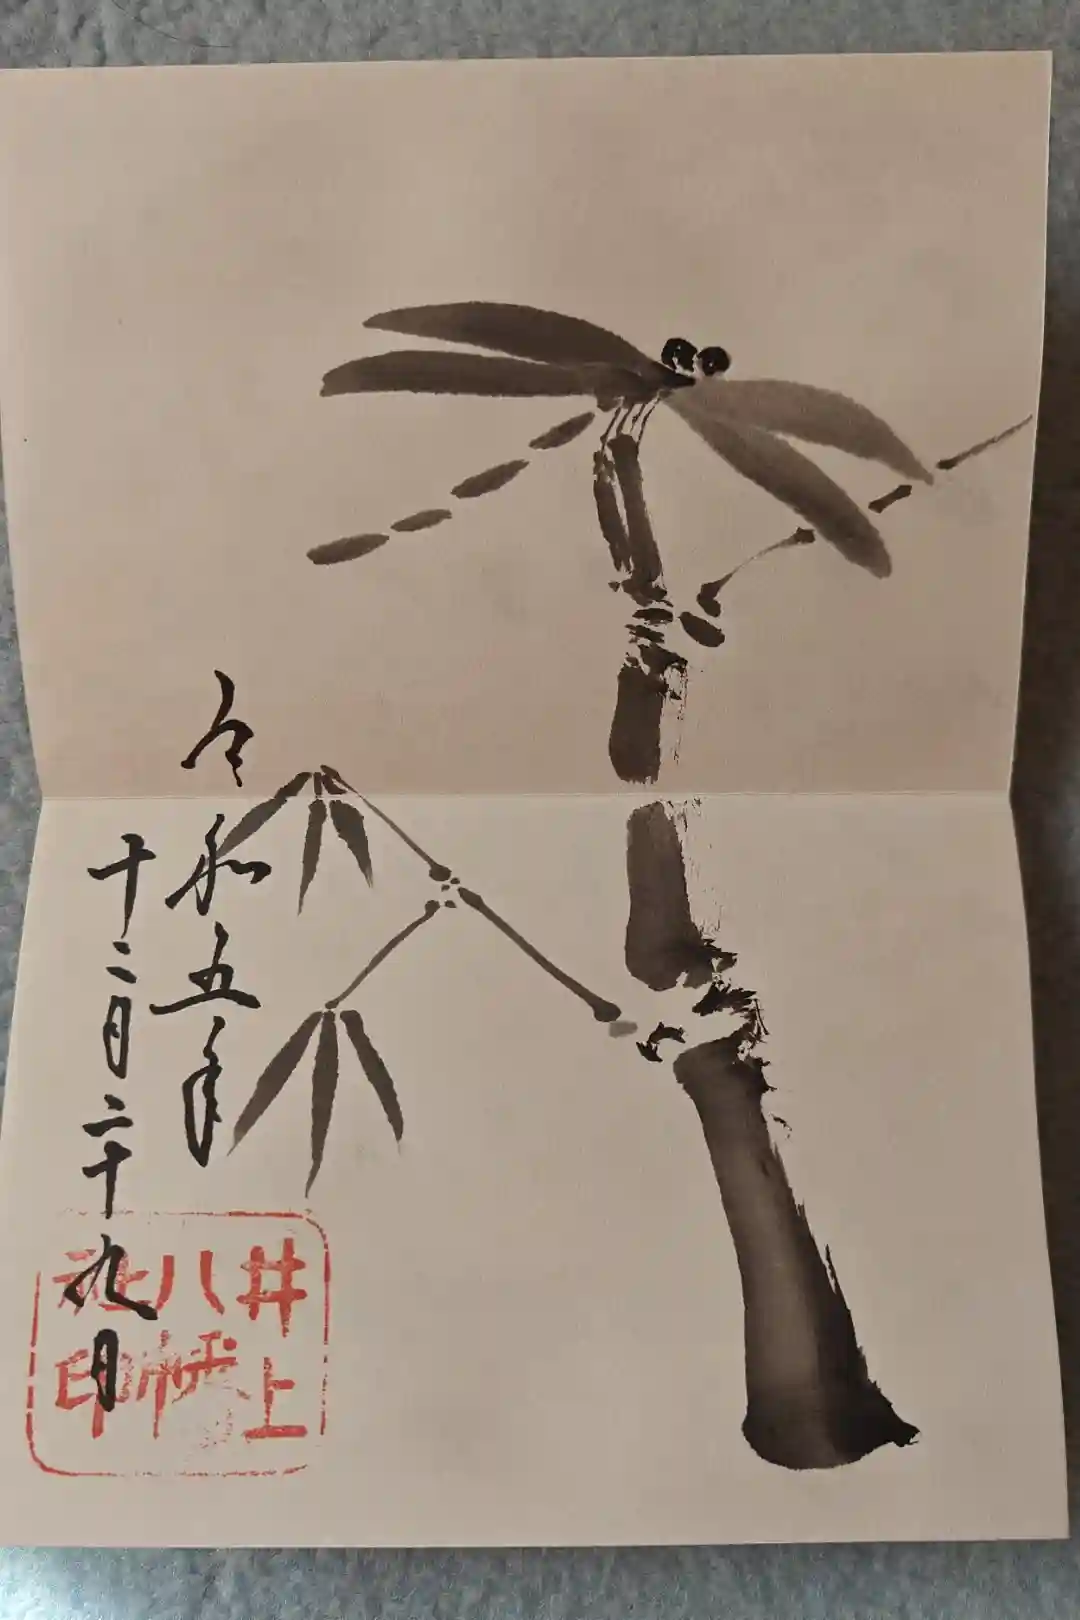 令和五年
十二月二十九日
井上
八幡
社印